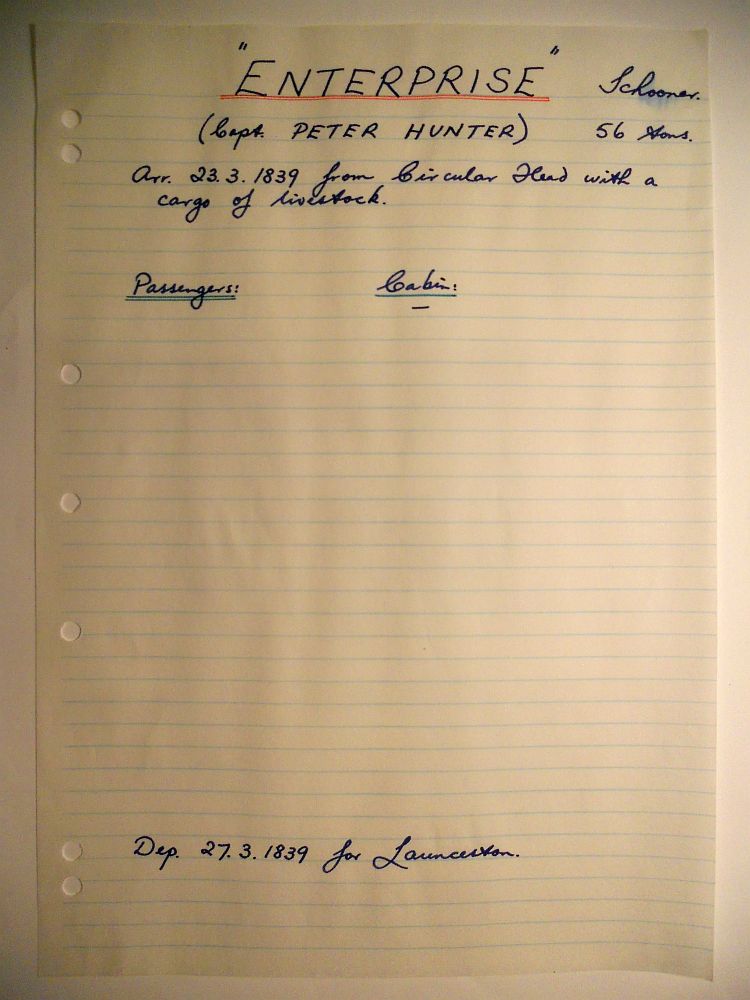 "ENTERPRISE" Schooner.
(Capt. PETER HUNTER) 56 tons.
Arr. 23.3.1839 from Circular Head with a
cargo of livestock.
Passengers: Cabin:
—
Dep. 27.3.1839 for Launceston.